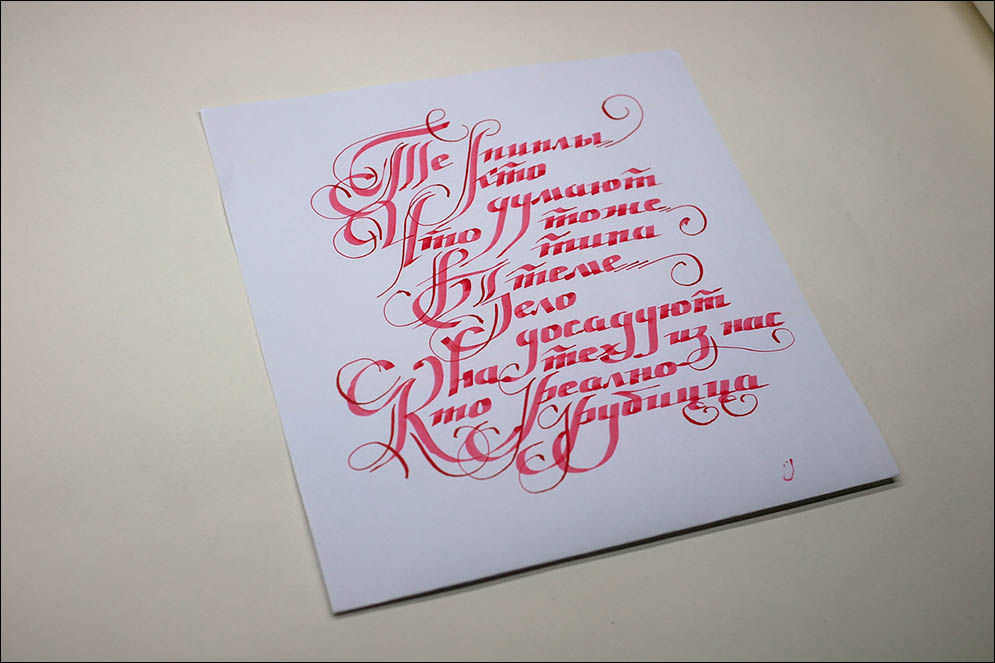 Те пиплы
кто
Что думают
тоже
типа
В теме
дело
досадуют
На тех из нас
Кто реално
рубицца
:)